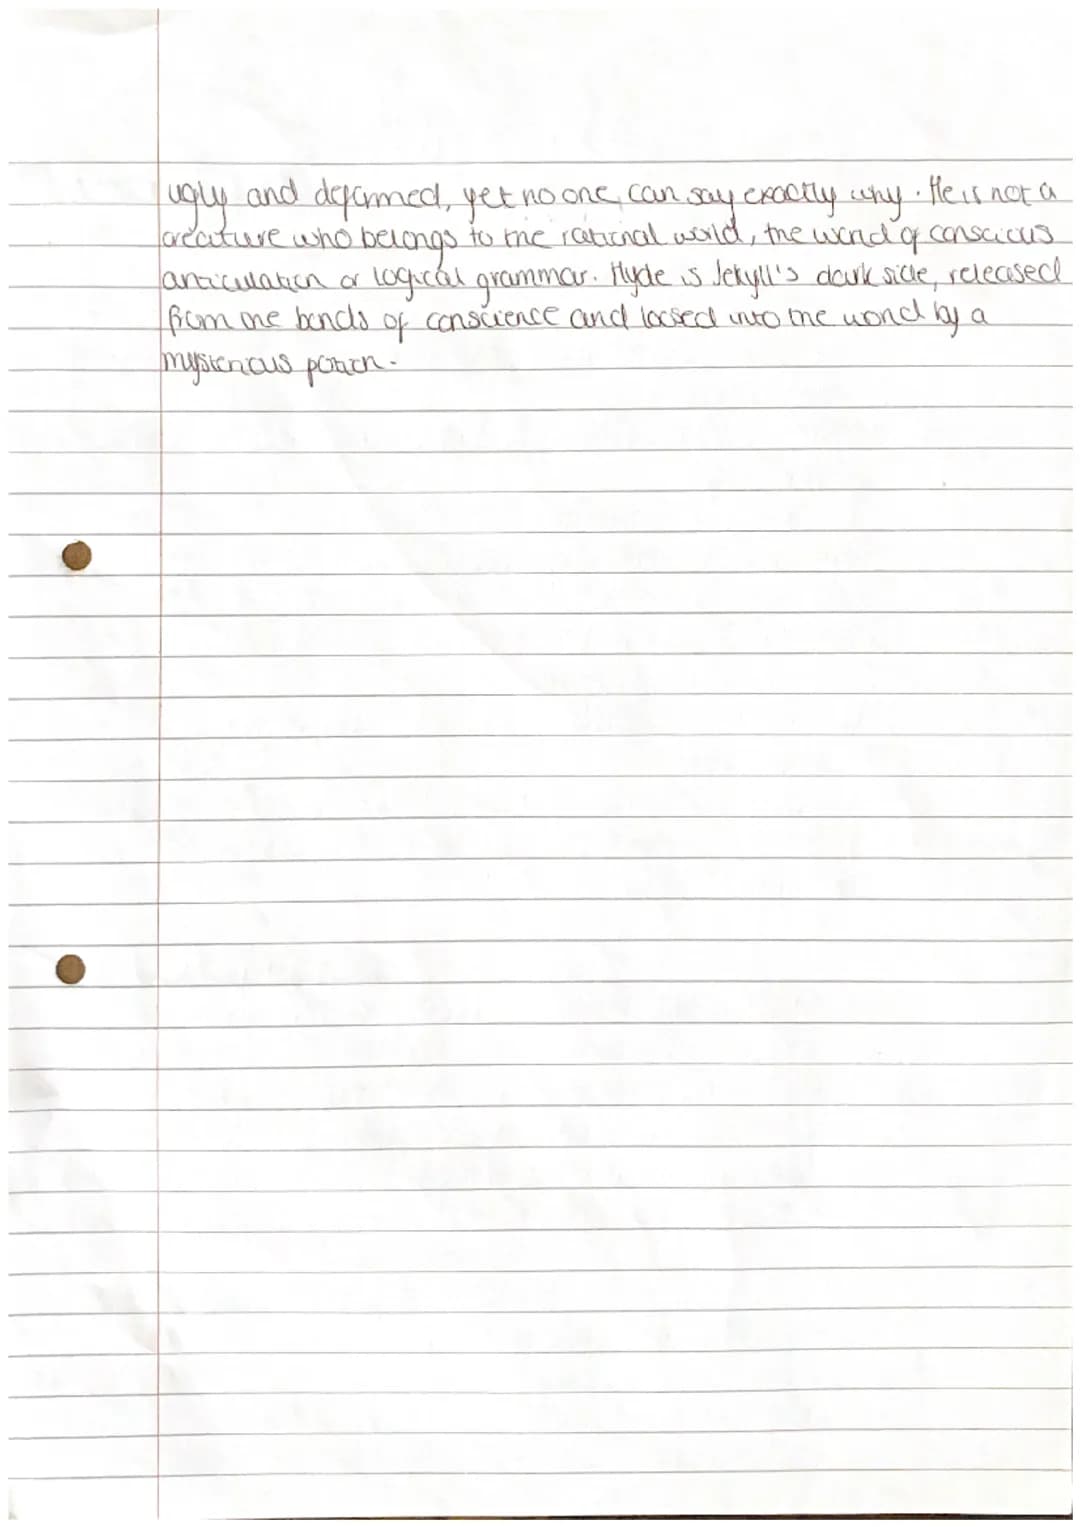 ugly and deformed, yet no one, can say exactly why. He is not a
creature who belongs to the rational world, the world of conscious
articulation or logical grammar. Hyde is Jekyll's dark side, released
from the bonds of conscience and loosed into the world by a
mysterious potion.